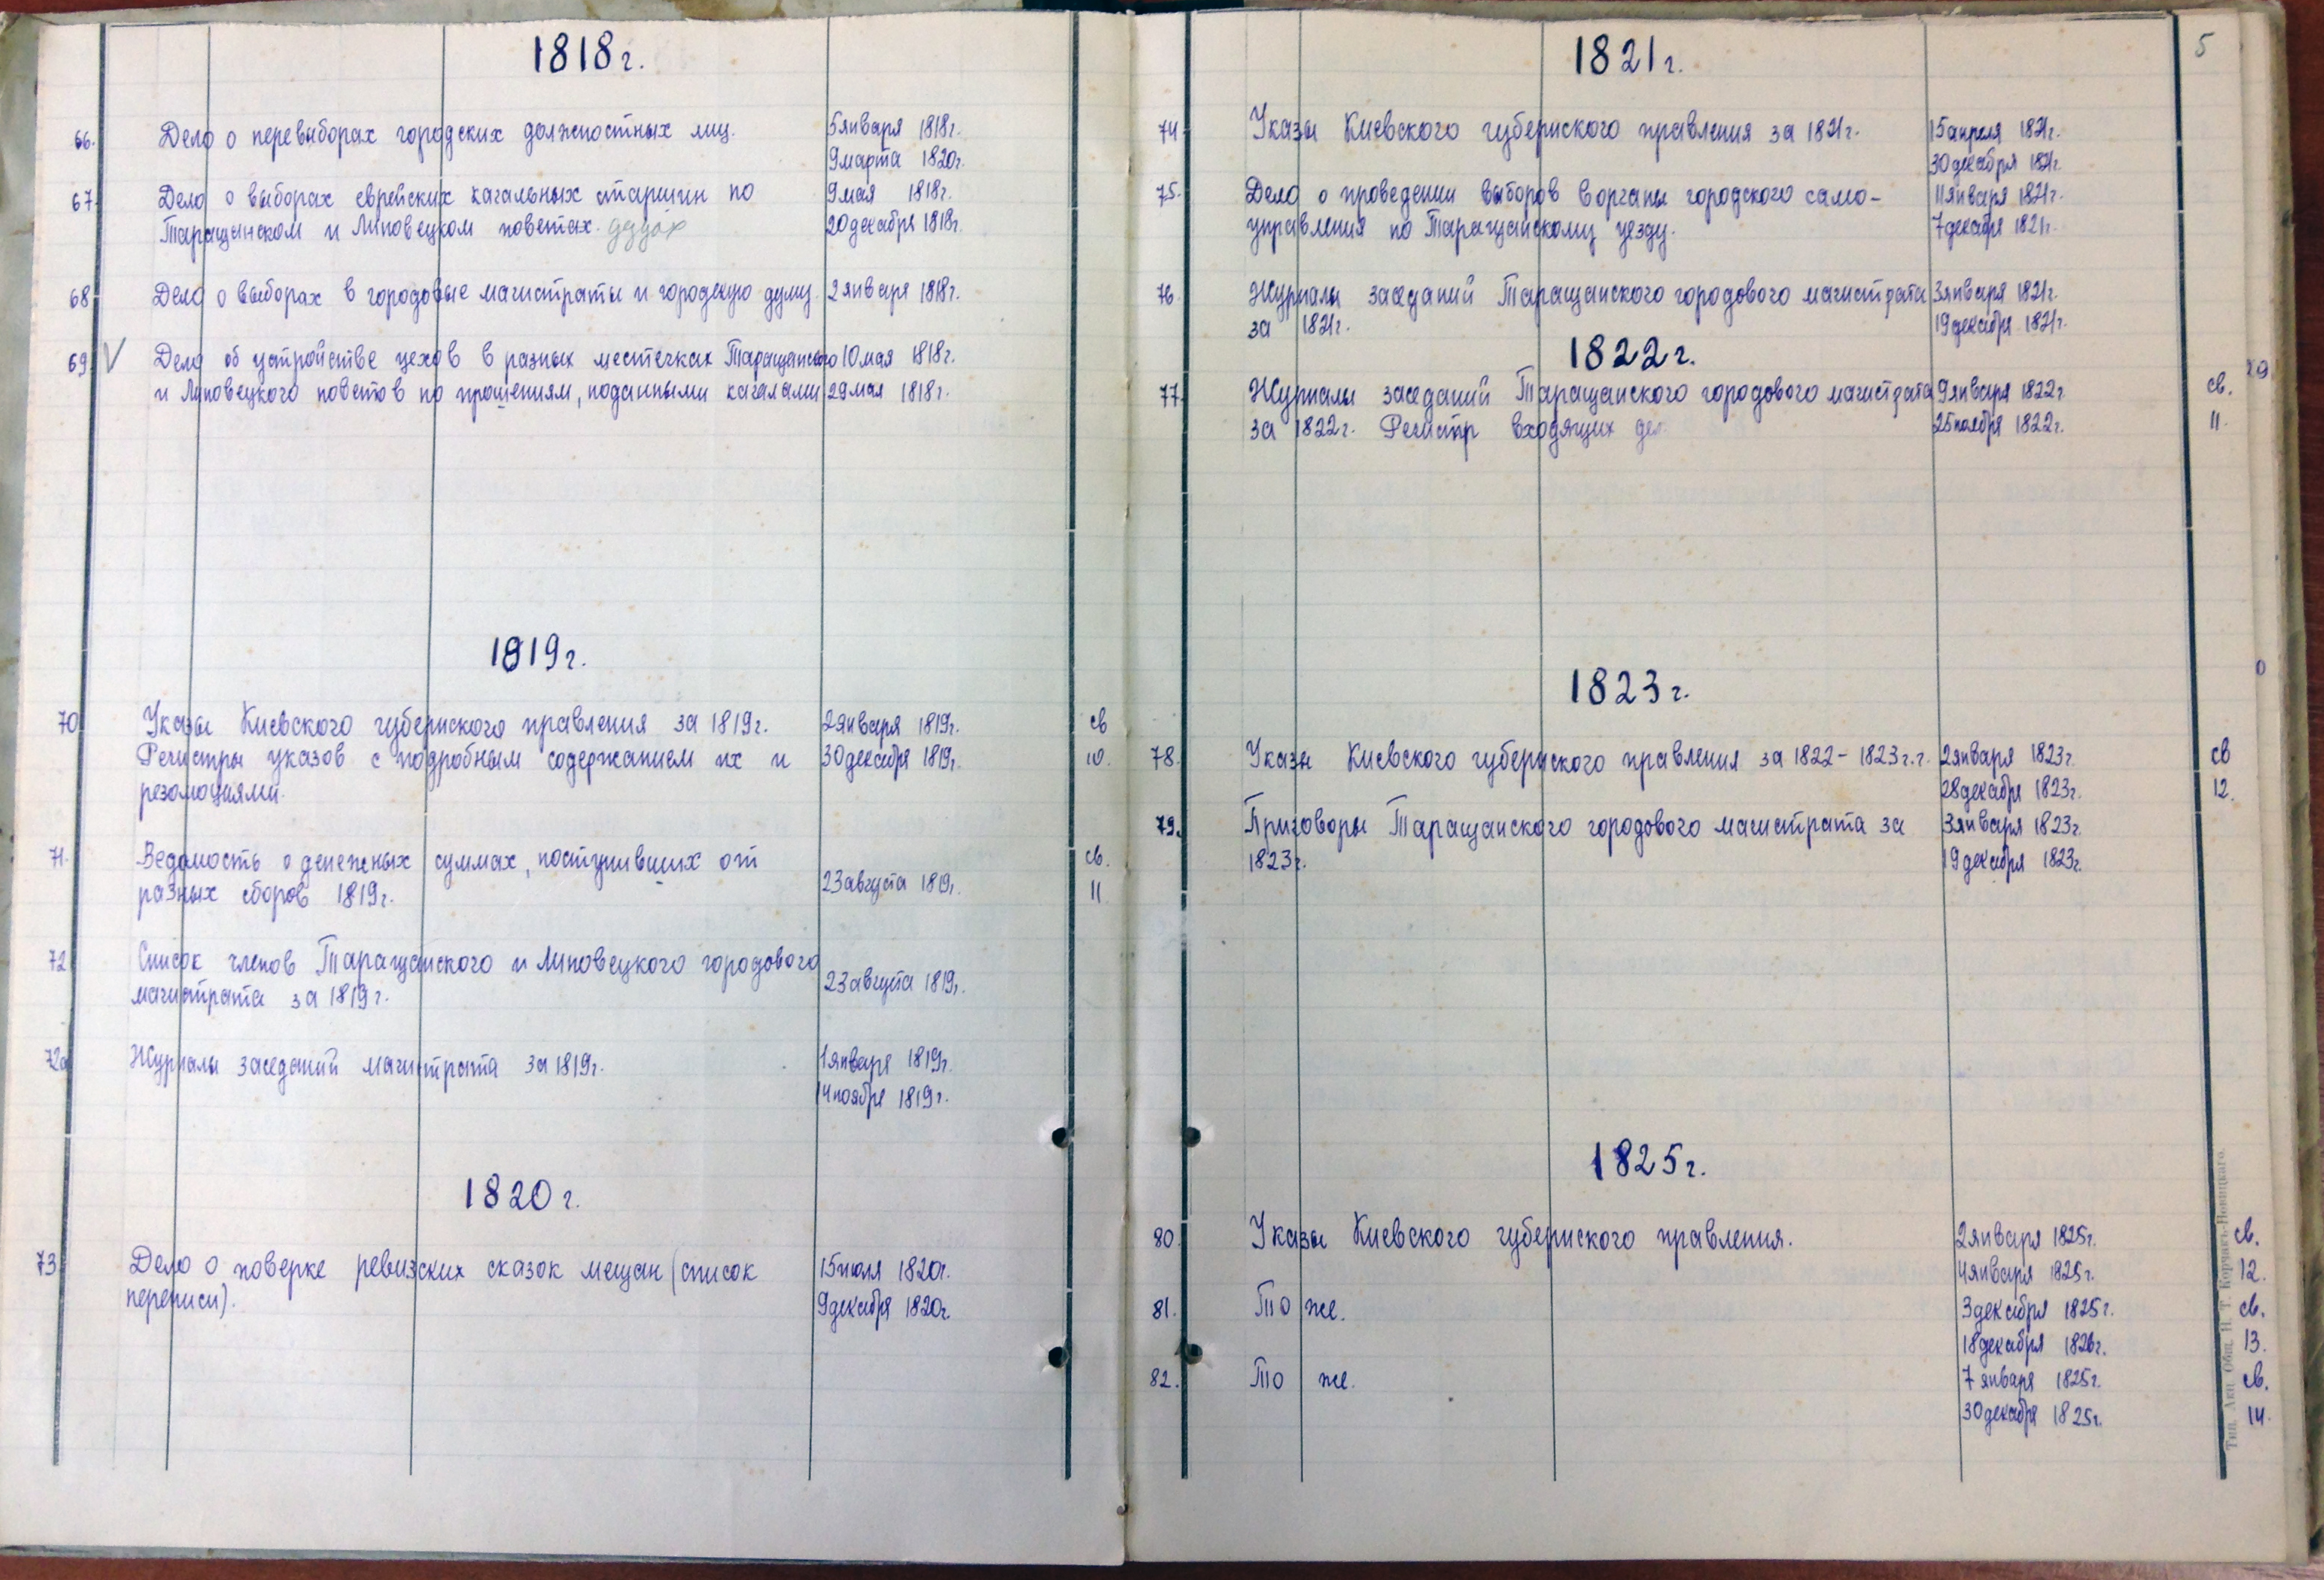 1818г.
66. Дело о перевыборах городских должностных лиц. 5 января 1818г.
9 марта 1820г.
67. Дело о выборах еврейских кагальных старшин по 9 мая 1818г.
Таращынском и Липовецком поветах. 20 декабря 1818г.
68. Дело о выборах в городовые магистраты и городскую думу. 2 января 1818г.
69. V Дело об устройстве цехов в разных местечках Таращанского 10 мая 1818г.
и Липовецкого поветов по прошениям, поданными кагалами 29 мая 1818г.
1819г.
70 Указы Киевского губернского правления за 1819г. 2 января 1819г. св
Регистры указов с подробным содержанием их и 30 декабря 1819г. 10.
резолюциями.
71. Ведомость о денежных суммах, поступивших от св.
разных сборов 1819г. 23 августа 1819г. 11
72 Список членов Таращанского и Липовецкого городового
магистрата за 1819г. 23 августа 1819г.
72а Журналы заседаний магистрата за 1819г. 1 января 1819г.
14 ноября 1819г.
1820г.
73 Дело о поверке ревизских сказок мещан (список 15 июля 1820г.
переписи). 9 декабря 1820г.
5
1821г.
74 Указы Киевского губернского правления за 1821г. 15 апреля 1821г.
30 декабря 1821г.
75. Дело о проведении выборов в органы городского само- 11 января 1821г.
управления по Таращанскому уезду. 7 декабря 1821г.
76. Журналы заседаний Таращанского городового магистрата 3 января 1821г.
за 1821г. 19 декабря 1821г.
1822г.
77. Журналы заседаний Таращанского городового магистрата 9 января 1822г. св.
за 1822г. Регистр входящих дел 25 ноября 1822г. 11.
1823г.
78. Указы Киевского губернского правления за 1822-1823г.г. 2 января 1823г. св
28 декабря 1823г. 12.
79. Приговоры Таращанского городового магистрата за 3 января 1823г.
1823г. 19 декабря 1823г.
1825г.
80. Указы Киевского губернского правления. 2 января 1825г. св.
4 января 1825г. 12.
81. То же. 3 декабря 1825г. св.
18 декабря 1826г. 13.
82. То же. 7 января 1825г. св.
30 декабря 1825г. 14.
Тип. Акц. Общ. Н. Т. Корчакъ-Новицкаго.